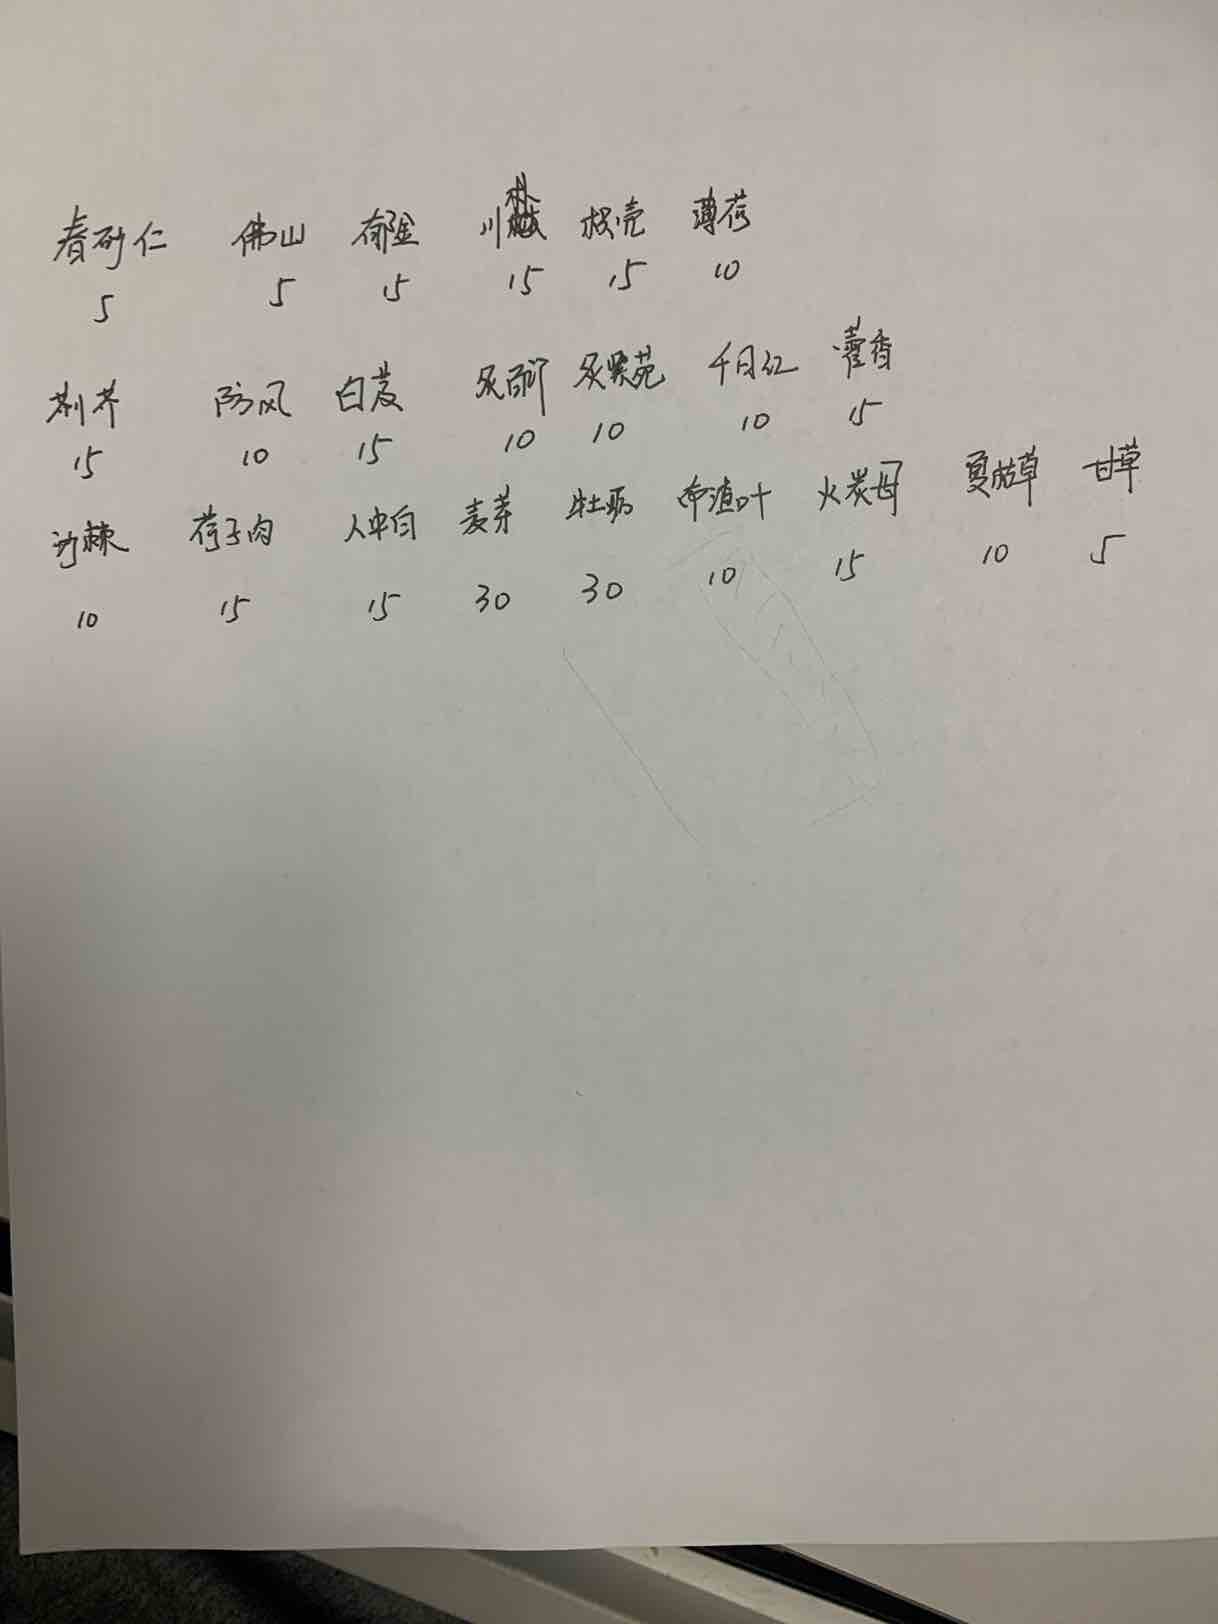 春砂仁 佛山 郁金 川朴 枳壳 薄荷
5 5 15 15 15 10
荆芥 防风 白芨 炙百部 炙紫苑 千日红 藿香
15 10 15 10 10 10 15
沙棘 荷子肉 人中白 麦芽 牡蛎 布渣叶 火炭母 夏枯草 甘草
10 15 15 30 30 10 15 10 5